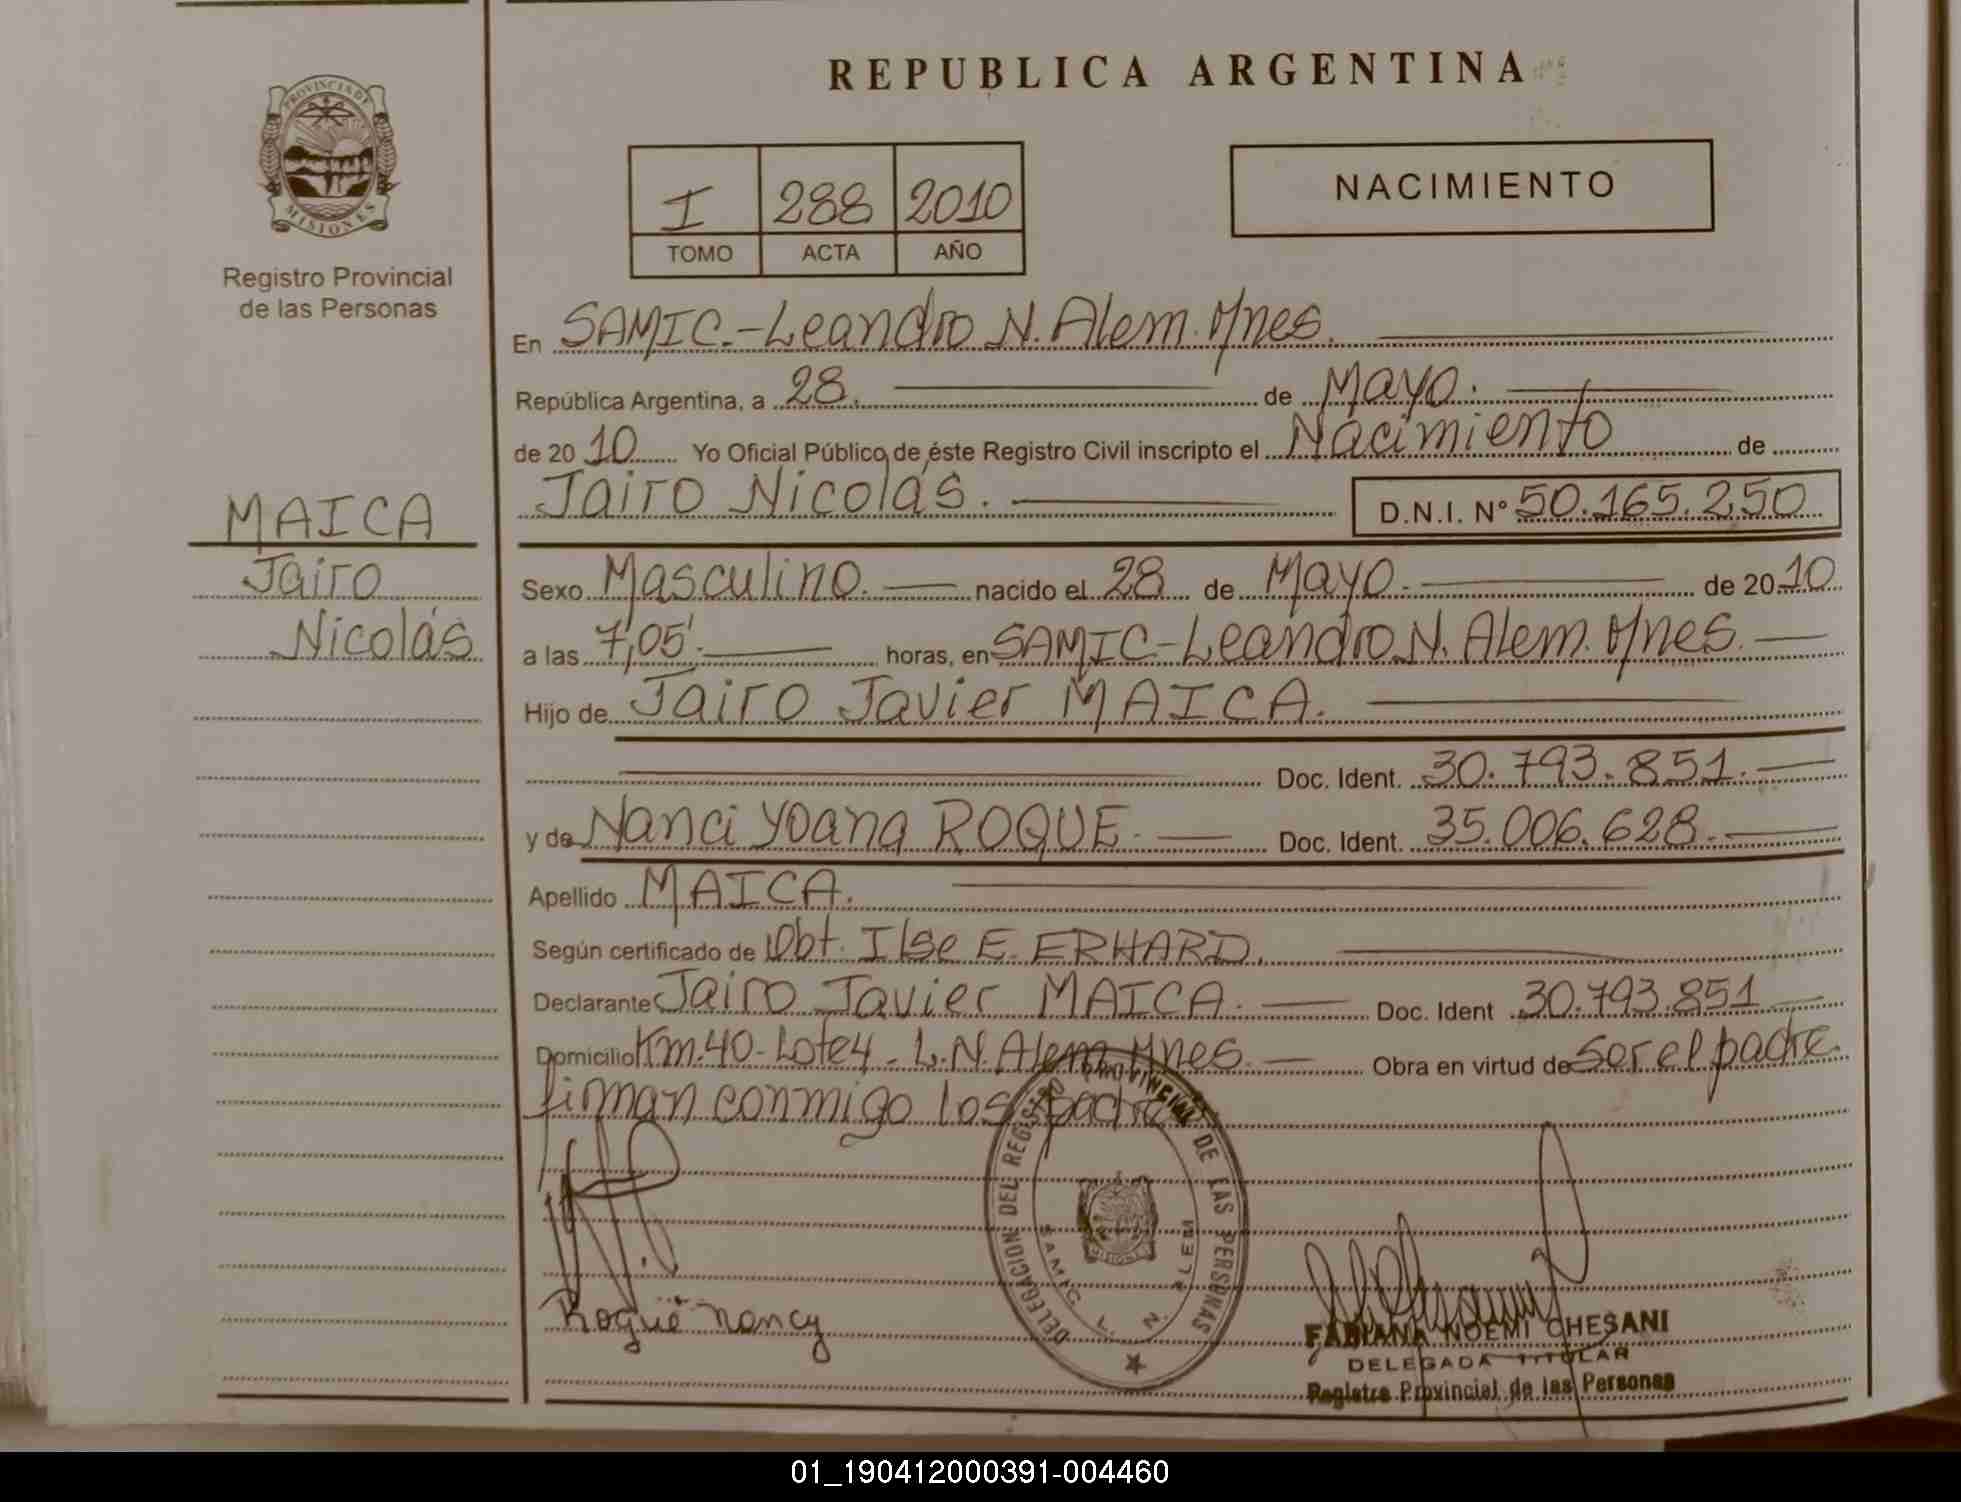 REPUBLICA ARGENTINA
PROVINCIA DE
MISIONES
Registro Provincial
de las Personas
I 288 2010
TOMO ACTA AÑO
NACIMIENTO
En SAMIC.-Leandro N. Alem. Mnes.
República Argentina, a 28. de Mayo.
de 2010 Yo Oficial Público de éste Registro Civil inscripto el Nacimiento de
Jairo Nicolás. D.N.I. N° 50.165.250
MAICA
Jairo
Nicolás
Sexo Masculino. nacido el 28 de Mayo. de 2010
a las 7,05'. horas, en SAMIC-Leandro N. Alem. Mnes.
Hijo de Jairo Javier MAICA.
Doc. Ident. 30.793.851.
y de Nanci Yoana ROQUE. Doc. Ident. 35.006.628.
Apellido MAICA.
Según certificado de Obt. Ilse E. ERHARD.
Declarante Jairo Javier MAICA. Doc. Ident 30.793.851
Domicilio Km.40-Lote4-L.N.Alem Mnes. Obra en virtud de Ser el padre.
firman conmigo los padre
DELEGACION DEL REGISTRO PROVINCIAL DE LAS PERSONAS
SAMIC. L. N. ALEM
MISIONES
Roque Nancy
FABIANA NOEMI CHESANI
DELEGADA TITULAR
Registro Provincial de las Personas
01_190412000391-004460